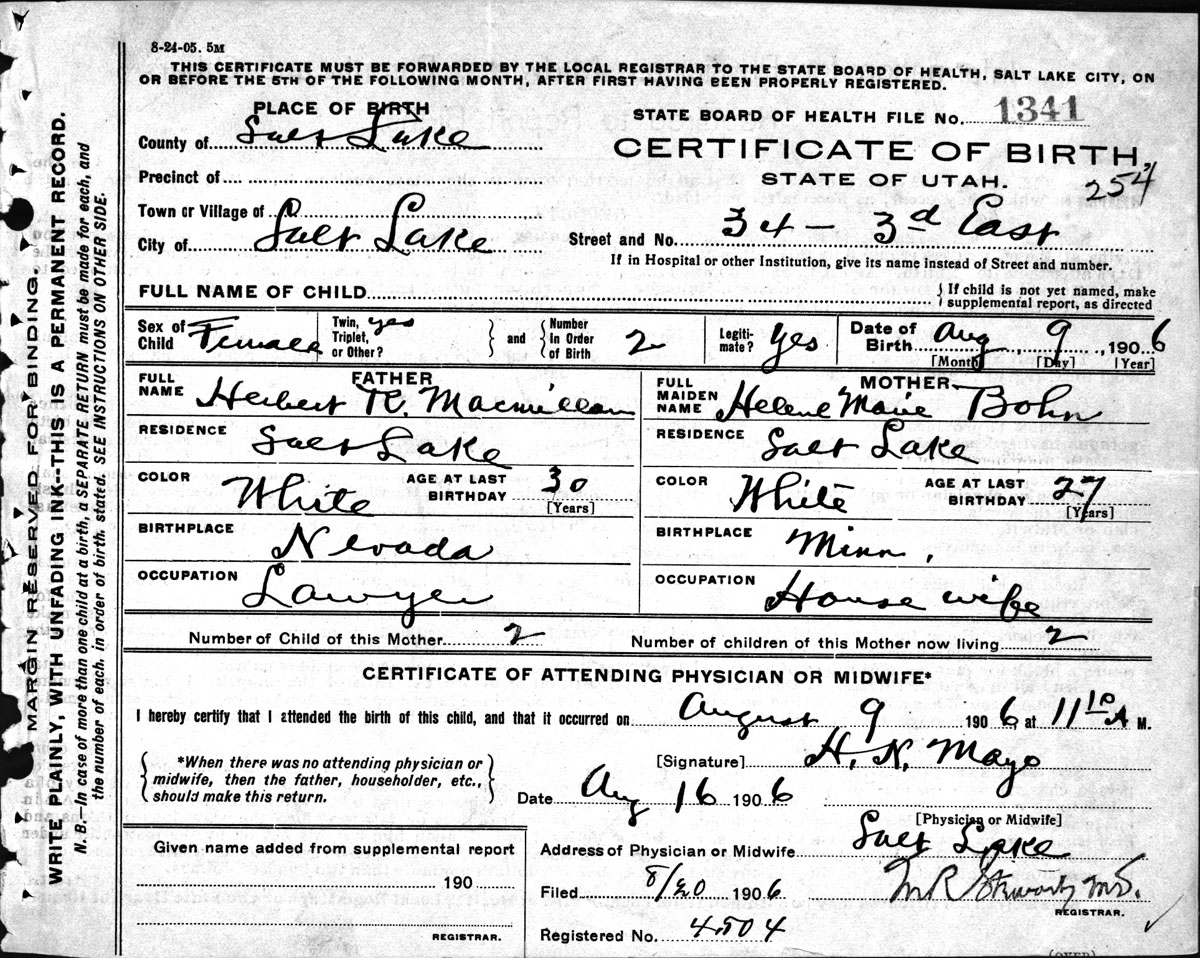 8-24-05. 5M
THIS CERTIFICATE MUST BE FORWARDED BY THE LOCAL REGISTRAR TO THE STATE BOARD OF HEALTH, SALT LAKE CITY, ON
OR BEFORE THE 5TH OF THE FOLLOWING MONTH, AFTER FIRST HAVING BEEN PROPERLY REGISTERED.
PLACE OF BIRTH
County of Salt Lake
Precinct of
Town or Village of
City of Salt Lake
STATE BOARD OF HEALTH FILE No. 1341
CERTIFICATE OF BIRTH,
STATE OF UTAH. 254
Street and No. 34 - 3d East
If in Hospital or other Institution, give its name instead of Street and number.
FULL NAME OF CHILD
{If child is not yet named, make
supplemental report, as directed
Sex of Child Female
Twin, Triplet, or Other? yes
and
Number In Order of Birth 2
Legiti-mate? Yes
Date of Birth Aug 9, 1906
[Month] [Day] [Year]
FATHER
FULL NAME Herbert R. Macmillan
RESIDENCE Salt Lake
COLOR White
AGE AT LAST BIRTHDAY 30
[Years]
BIRTHPLACE Nevada
OCCUPATION Lawyer
MOTHER
FULL MAIDEN NAME Helene Marie Bohn
RESIDENCE Salt Lake
COLOR White
AGE AT LAST BIRTHDAY 27
[Years]
BIRTHPLACE Minn.
OCCUPATION House wife
Number of Child of this Mother 2
Number of children of this Mother now living 2
CERTIFICATE OF ATTENDING PHYSICIAN OR MIDWIFE*
I hereby certify that I attended the birth of this child, and that it occurred on August 9 1906, at 11 10 A M.
{*When there was no attending physician or
midwife, then the father, householder, etc.,
should make this return.}
[Signature] H. N. Mayo
Date Aug 16 1906
[Physician or Midwife]
Address of Physician or Midwife Salt Lake
Filed 8/20 1906
REGISTRAR.
Registered No. 4504
Given name added from supplemental report
190
REGISTRAR.
(OVER)
MARGIN RESERVED FOR BINDING.
WRITE PLAINLY, WITH UNFADING INK--THIS IS A PERMANENT RECORD.
N. B.--In case of more than one child at a birth, a SEPARATE RETURN must be made for each, and
the number of each, in order of birth, stated. SEE INSTRUCTIONS ON OTHER SIDE.